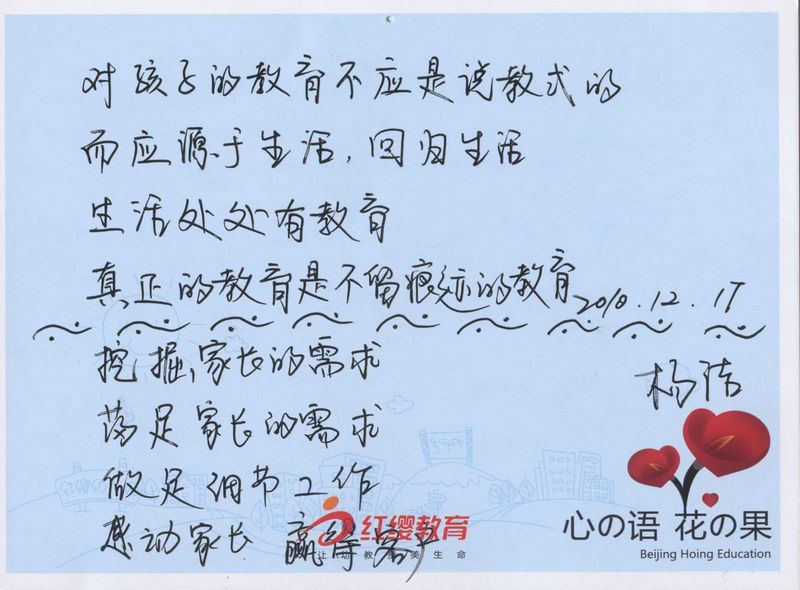 对孩子的教育不应是说教式的
而应源于生活,回归生活
生活处处有教育
真正的教育是不留痕迹的教育
2010.12.17
挖掘家长的需求
杨洁
满足家长的需求
做足细节工作
感动家长 赢得客户
红缨教育
让幼教更美生命
心の语 花の果
Beijing Hoing Education